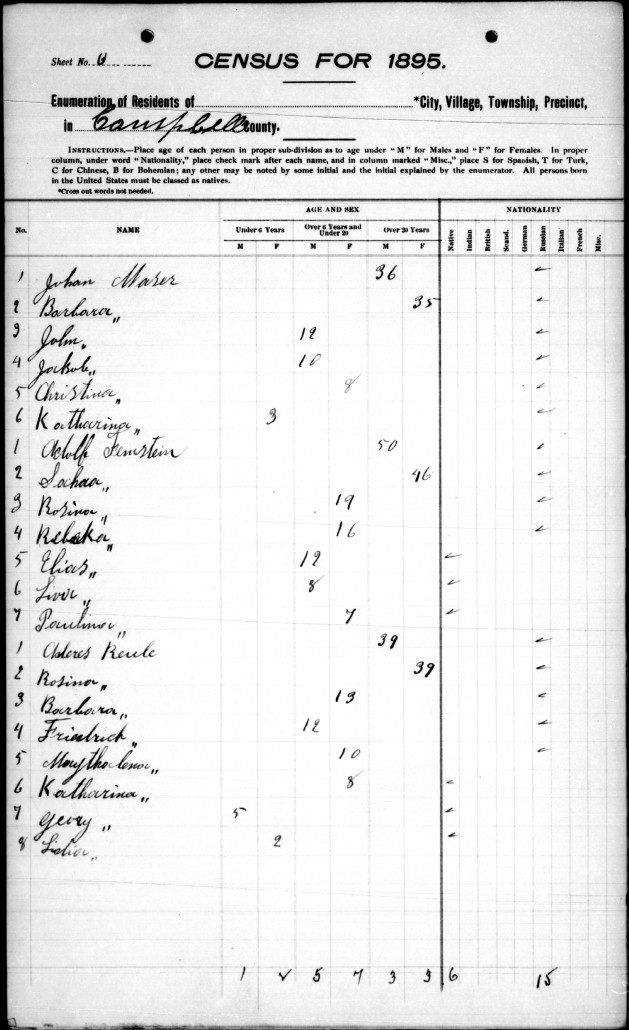 Sheet No. 6
CENSUS FOR 1895.
Enumeration of Residents of *City, Village, Township, Precinct,
in Campbell County.
INSTRUCTIONS.—Place age of each person in proper sub-division as to age under "M" for Males and "F" for Females. In proper
column, under word "Nationality," place check mark after each name, and in column marked "Misc.," place S for Spanish, T for Turk,
C for Chinese, B for Bohemian; any other may be noted by some initial and the initial explained by the enumerator. All persons born
in the United States must be classed as natives.
*Cross out words not needed.
AGE AND SEX NATIONALITY
No. NAME Under 6 Years Over 6 Years and Under 20 Over 20 Years Native Indian British Scand. German Russian Italian French Misc.
M F M F M F
1 Johan Maser 36 ✓
2 Barbara " 35 ✓
3 John " 12 ✓
4 Jakob " 10 ✓
5 Christina " 8 ✓
6 Katharina " 3 ✓
1 Adolf 50 ✓
2 " 46 ✓
3 Rosina " 19 ✓
4 Rebeka " 16 ✓
5 Elias " 12 ✓
6 " 8 ✓
7 Paulina " 7 ✓
1 Keule 39 ✓
2 Rosina " 39 ✓
3 Barbara " 13 ✓
4 Friedrich " 12 ✓
5 Maythalena " 10 ✓
6 Katharina " 8 ✓
7 Georg " 5 ✓
8 " 2 ✓
1 2 5 7 3 3 6 15